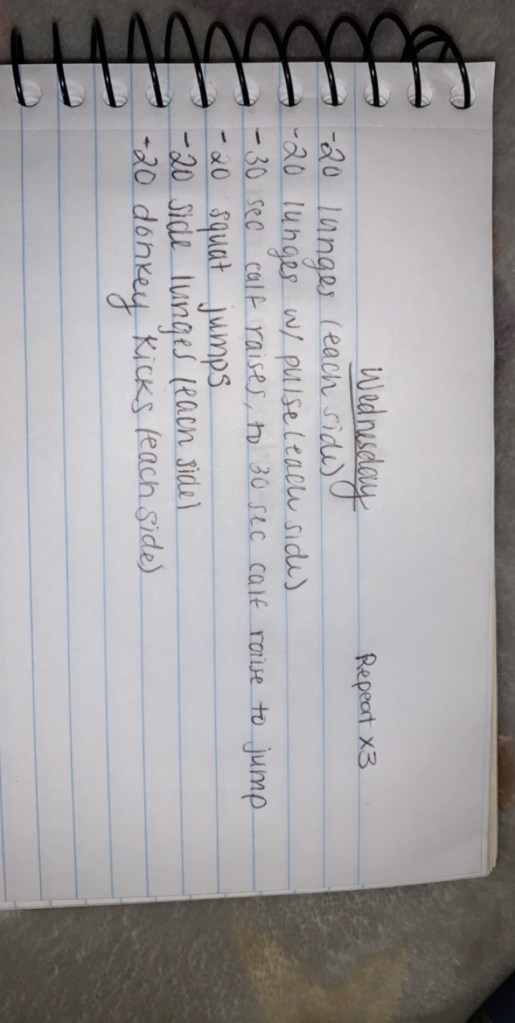 Wednesday
Repeat x3
-20 lunges (each side)
-20 lunges w/ pulse (each side)
-30 sec calf raises, to 30 sec calf raise to jump
-20 squat jumps
-20 side lunges (each side)
-20 donkey kicks (each side)